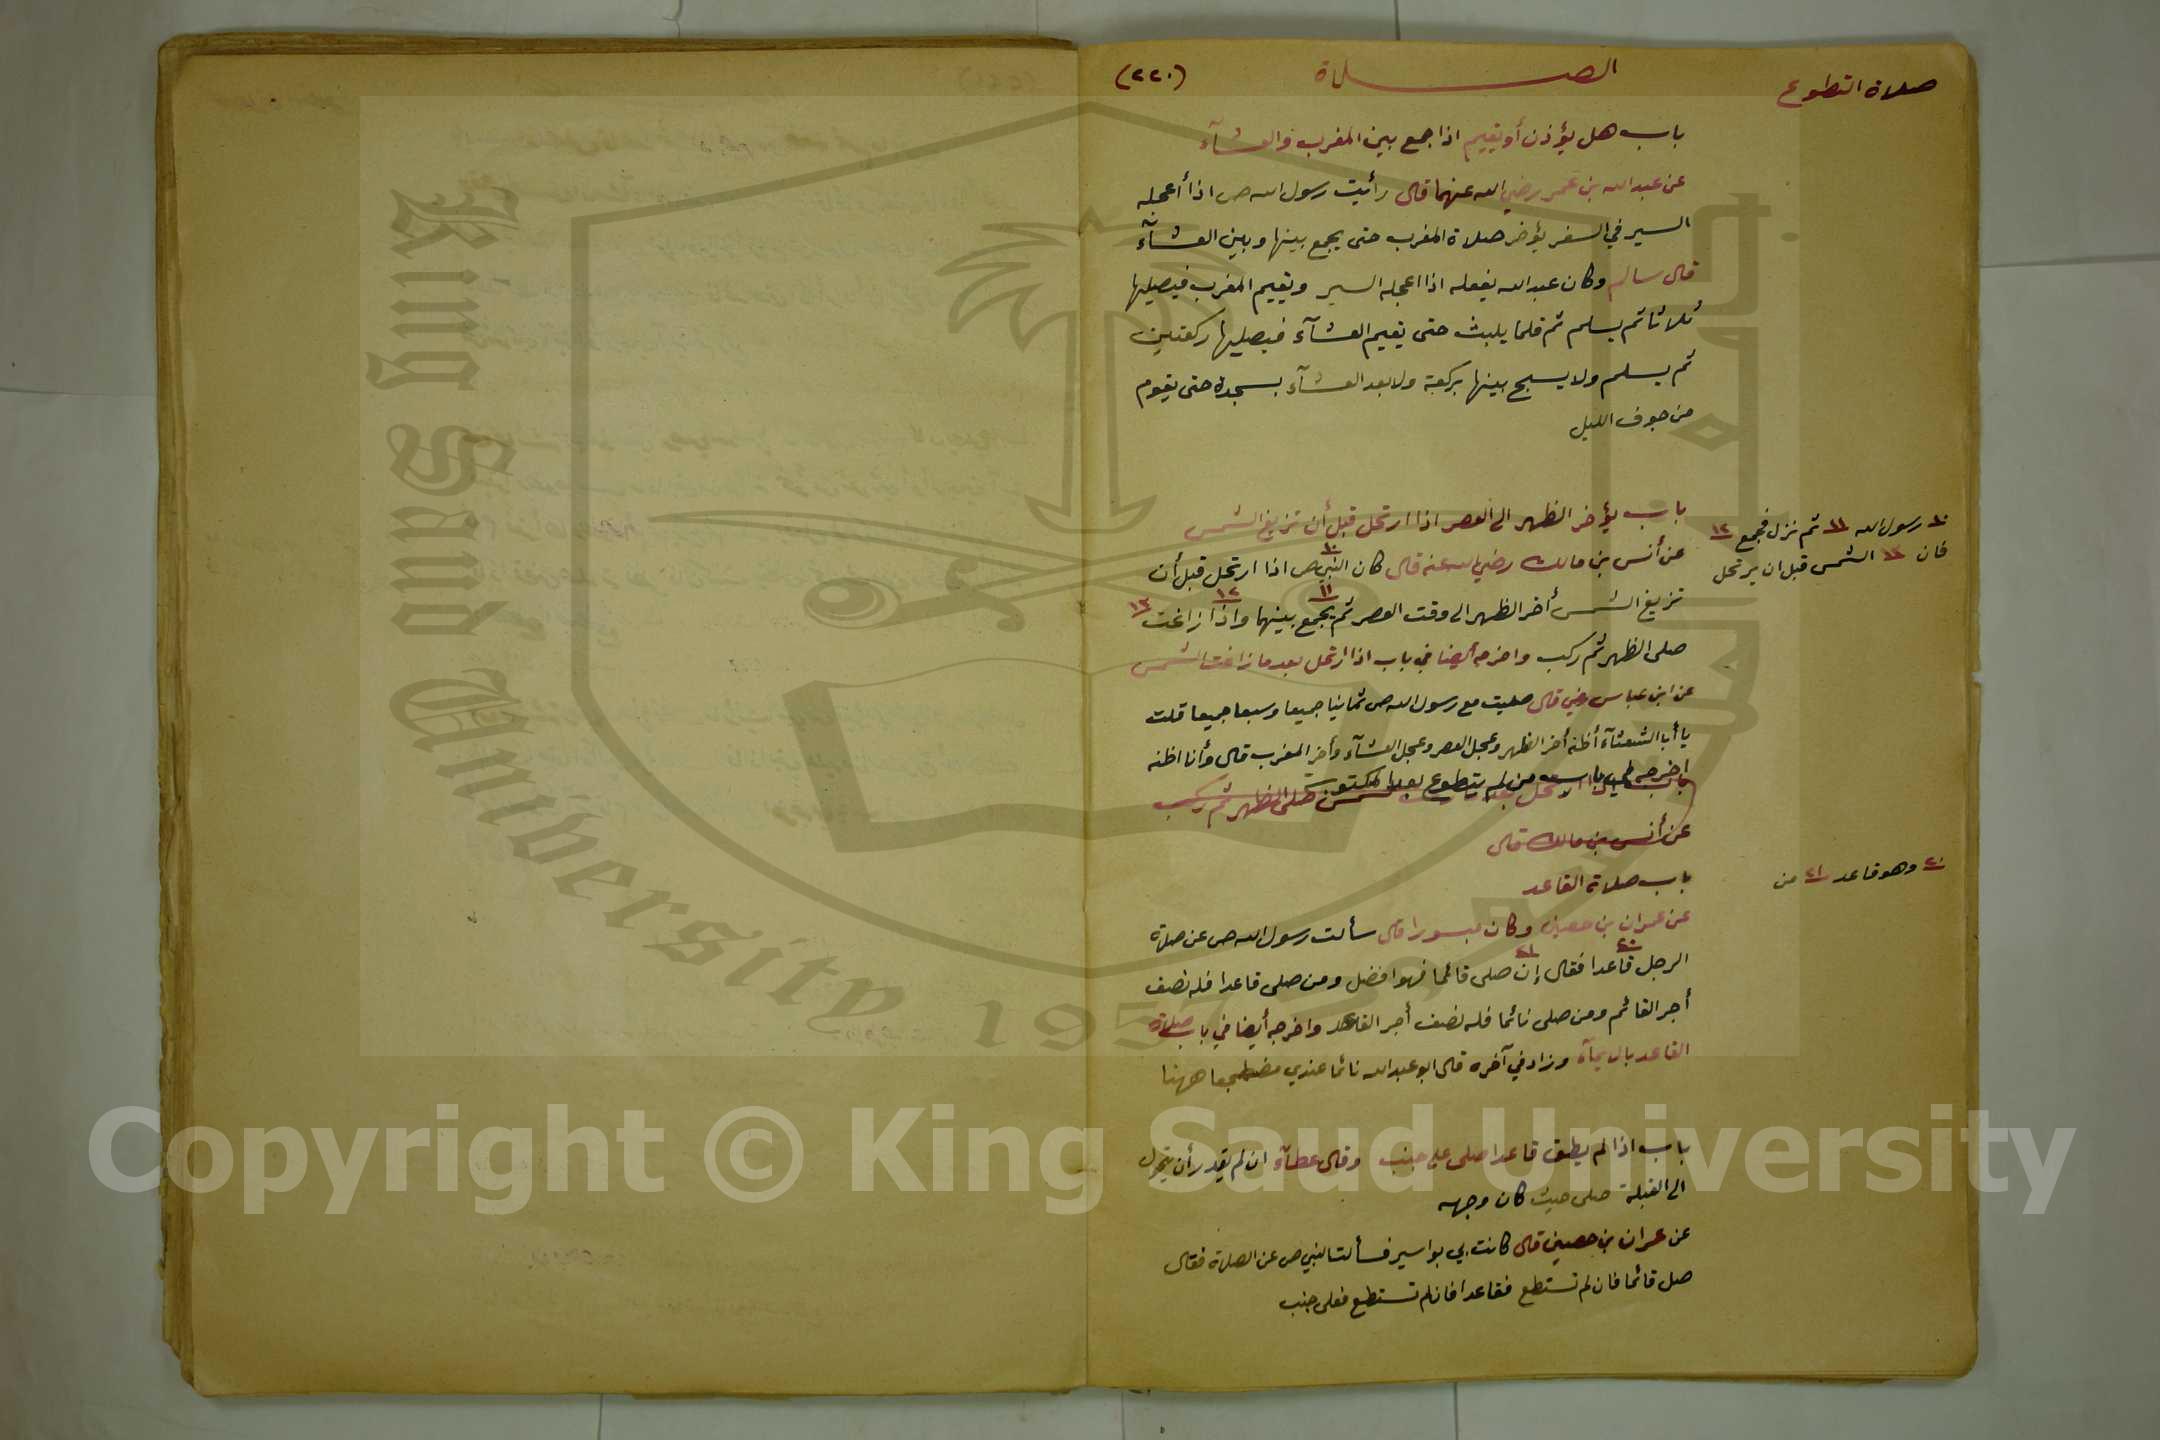 صلاة التطوع
الصلاة
(٢٢٠)
باب هل يؤذن أو يقيم اذا جمع بين المغرب والعشآء
عن عبد الله بن عمر رضي الله عنهما قال رأيت رسول الله ص اذا أعجله
السير في السفر يؤخر صلاة المغرب حتى يجمع بينها وبين العشآء
قال سالم وكان عبد الله يفعله اذا اعجله السير ويقيم المغرب فيصليها
ثلاثا ثم يسلم ثم قلما يلبث حتى يقيم العشآء فيصليها ركعتين
ثم يسلم ولا يسبح بينها بركعة ولا بعد العشآء بسجدة حتى يقوم
من جوف الليل
باب يؤخر الظهر الى العصر اذا ارتحل قبل أن تزيغ الشمس
عن أنس بن مالك رضي الله عنه قال كان النبي ١٠ ص اذا ارتحل قبل أن
تزيغ الشمس أخر الظهر الى وقت العصر ثم ١١ يجمع بينهما واذا ١٢ زاغت ١٣
صلى الظهر ثم ركب واخرجه أيضا في باب اذا ارتحل بعد ما زاغت الشمس
١٠ رسول الله ١١ ثم نزل فجمع ١٢
فان ١٣ الشمس قبل ان يرتحل
عن ابن عباس رضي قال صليت مع رسول الله ص ثمانيا جميعا وسبعا جميعا قلت
يا أبا الشعثآء أظنه أخر الظهر وعجل العصر وعجل العشآء وأخر المغرب قال وأنا اظنه
اخرجه في باب من لم يتطوع بعد المكتوبة
صلى الظهر ثم ركب
عن أنس بن مالك قال
باب صلاة القاعد
عن عمران بن حصين وكان مبسورا قال سألت رسول الله ص عن صلاة
الرجل ٢٠ قاعدا فقال إن ٢١ صلى قائما فهو افضل ومن صلى قاعدا فله نصف
أجر القائم ومن صلى نائما فله نصف أجر القاعد واخرجه أيضا في باب صلاة
القاعد بالايمآء وزاد في آخره قال ابو عبد الله نائما عندي مضطجعا ههنا
٢٠ وهو قاعد ٢١ من
باب اذا لم يطق قاعدا صلى على جنب وقال عطآء ان لم يقدر أن يتحول
الى القبلة صلى حيث كان وجهه
عن عمران بن حصين قال كانت بي بواسير فسألت النبي ص عن الصلاة فقال
صل قائما فان لم تستطع فقاعدا فان لم تستطع فعلى جنب
King Saud University 1957
Copyright © King Saud University